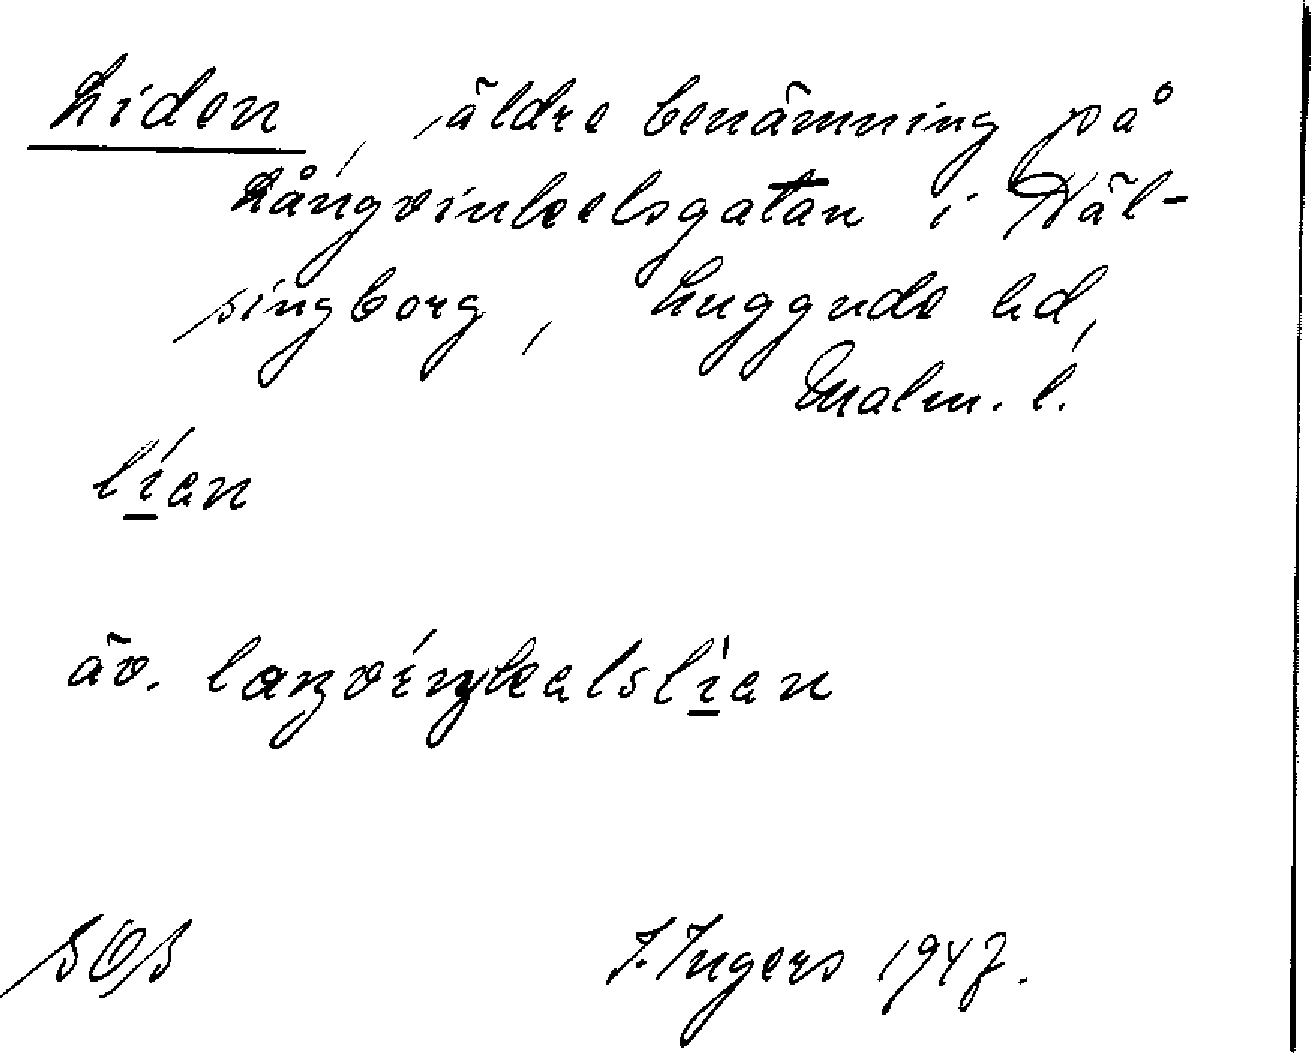 Liden, äldre benämning på
Långvinkelsgatan i Häl-
singborg, Luggude hd,
Malm. l.
lían
äv. laŋvíŋkəlslìan
SOS I. Ingers 1947.